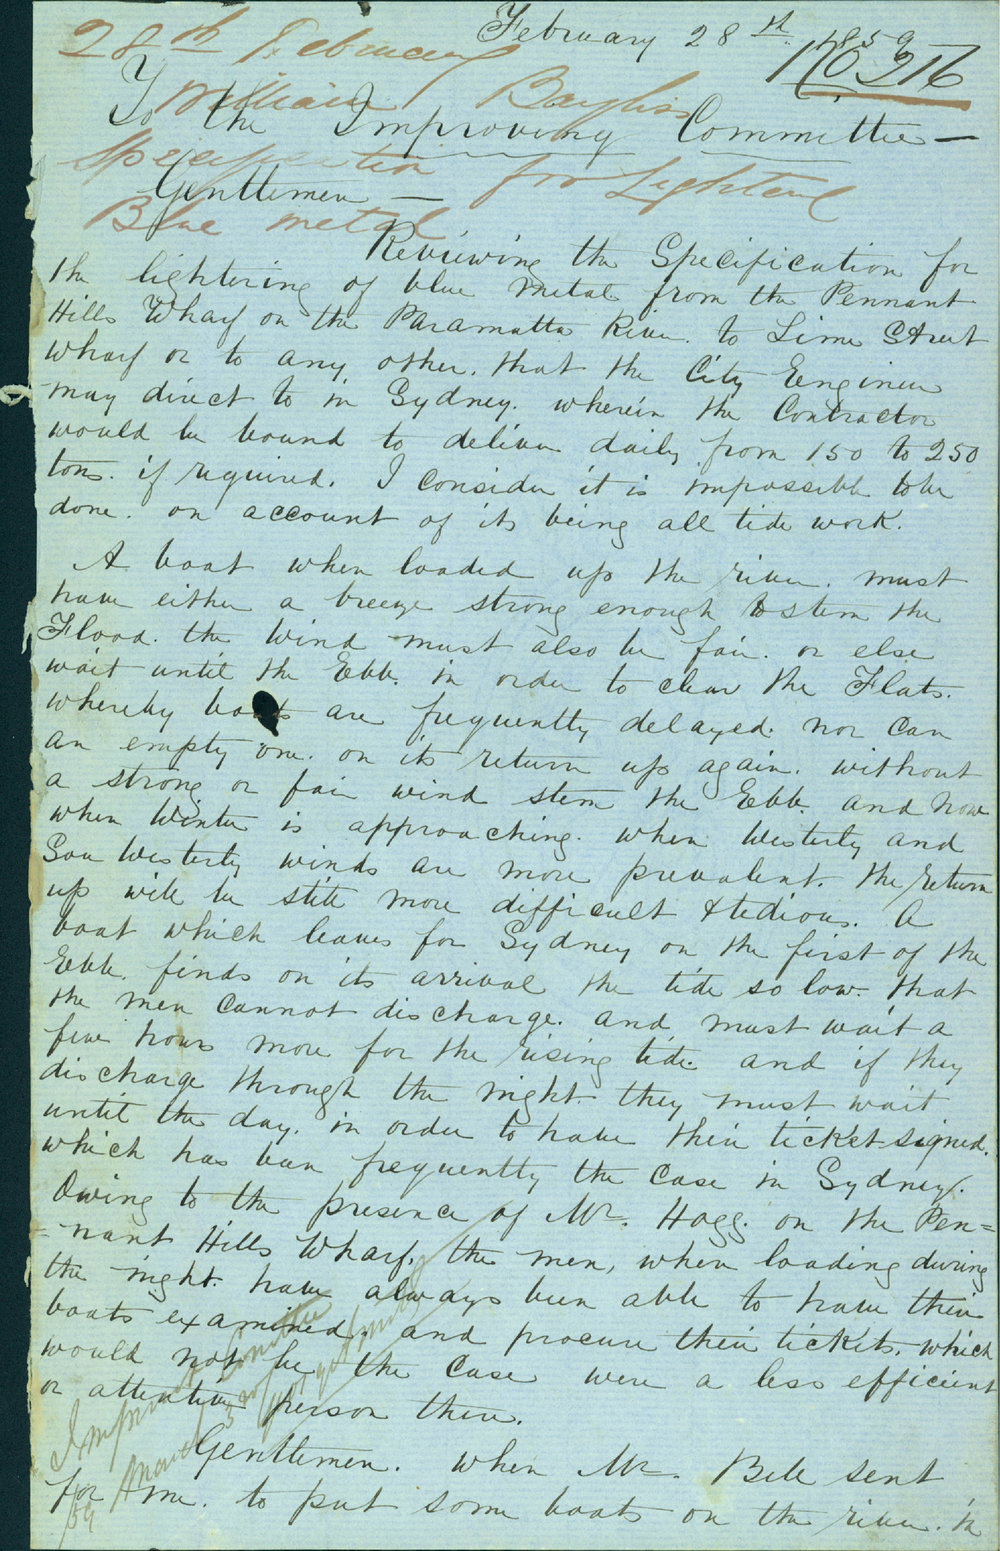 February 28th. 1859
No 216
28th February
William Bayliss
Specification for Lightening
Blue metal
To the Improving Committee —
Gentlemen —
Reviewing the Specification for
the lightering of blue metal from the Pennant
Hills Wharf on the Paramatta River. to Lime Street
wharf or to any other. that the City Eengineer
may direct to in Sydney. wherein the Contractor
would be bound to deliver daily from 150 to 250
tons. if required. I consider it is impossible to be
done. on account of its being all tide work.
A boat when loaded up the river. must
have either a breeze strong enough to stem the
Flood. the wind must also be fair. or else
wait until the Ebb. in order to clear the Flats.
whereby boats are frequently delayed. nor can
an empty one. on its return up again. without
a strong or fair wind stem the Ebb. and now
when Winter is approaching. when Westerly and
Sou Westerly winds are more prevalent. the return
up will be still more difficult & tedious. A
boat which leaves for Sydney on the first of the
Ebb. finds on its arrival the tide so low. that
the men cannot discharge. and must wait a
few hours more for the rising tide. and if they
discharge through the night. they must wait
until the day. in order to have their ticket signed.
which has been frequently the case in Sydney.
Owing to the presence of Mr. Hogg. on the Pen=
=nant Hills Wharf. the men, when loading during
the night. have always been able to have their
boats examined, and procure their tickets. which
would not be the case were a less efficient
or attentive person there.
Gentlemen. when Mr. Bell sent
for me. to put some boats on the river. in
Improvement Committee
March 3rd
59